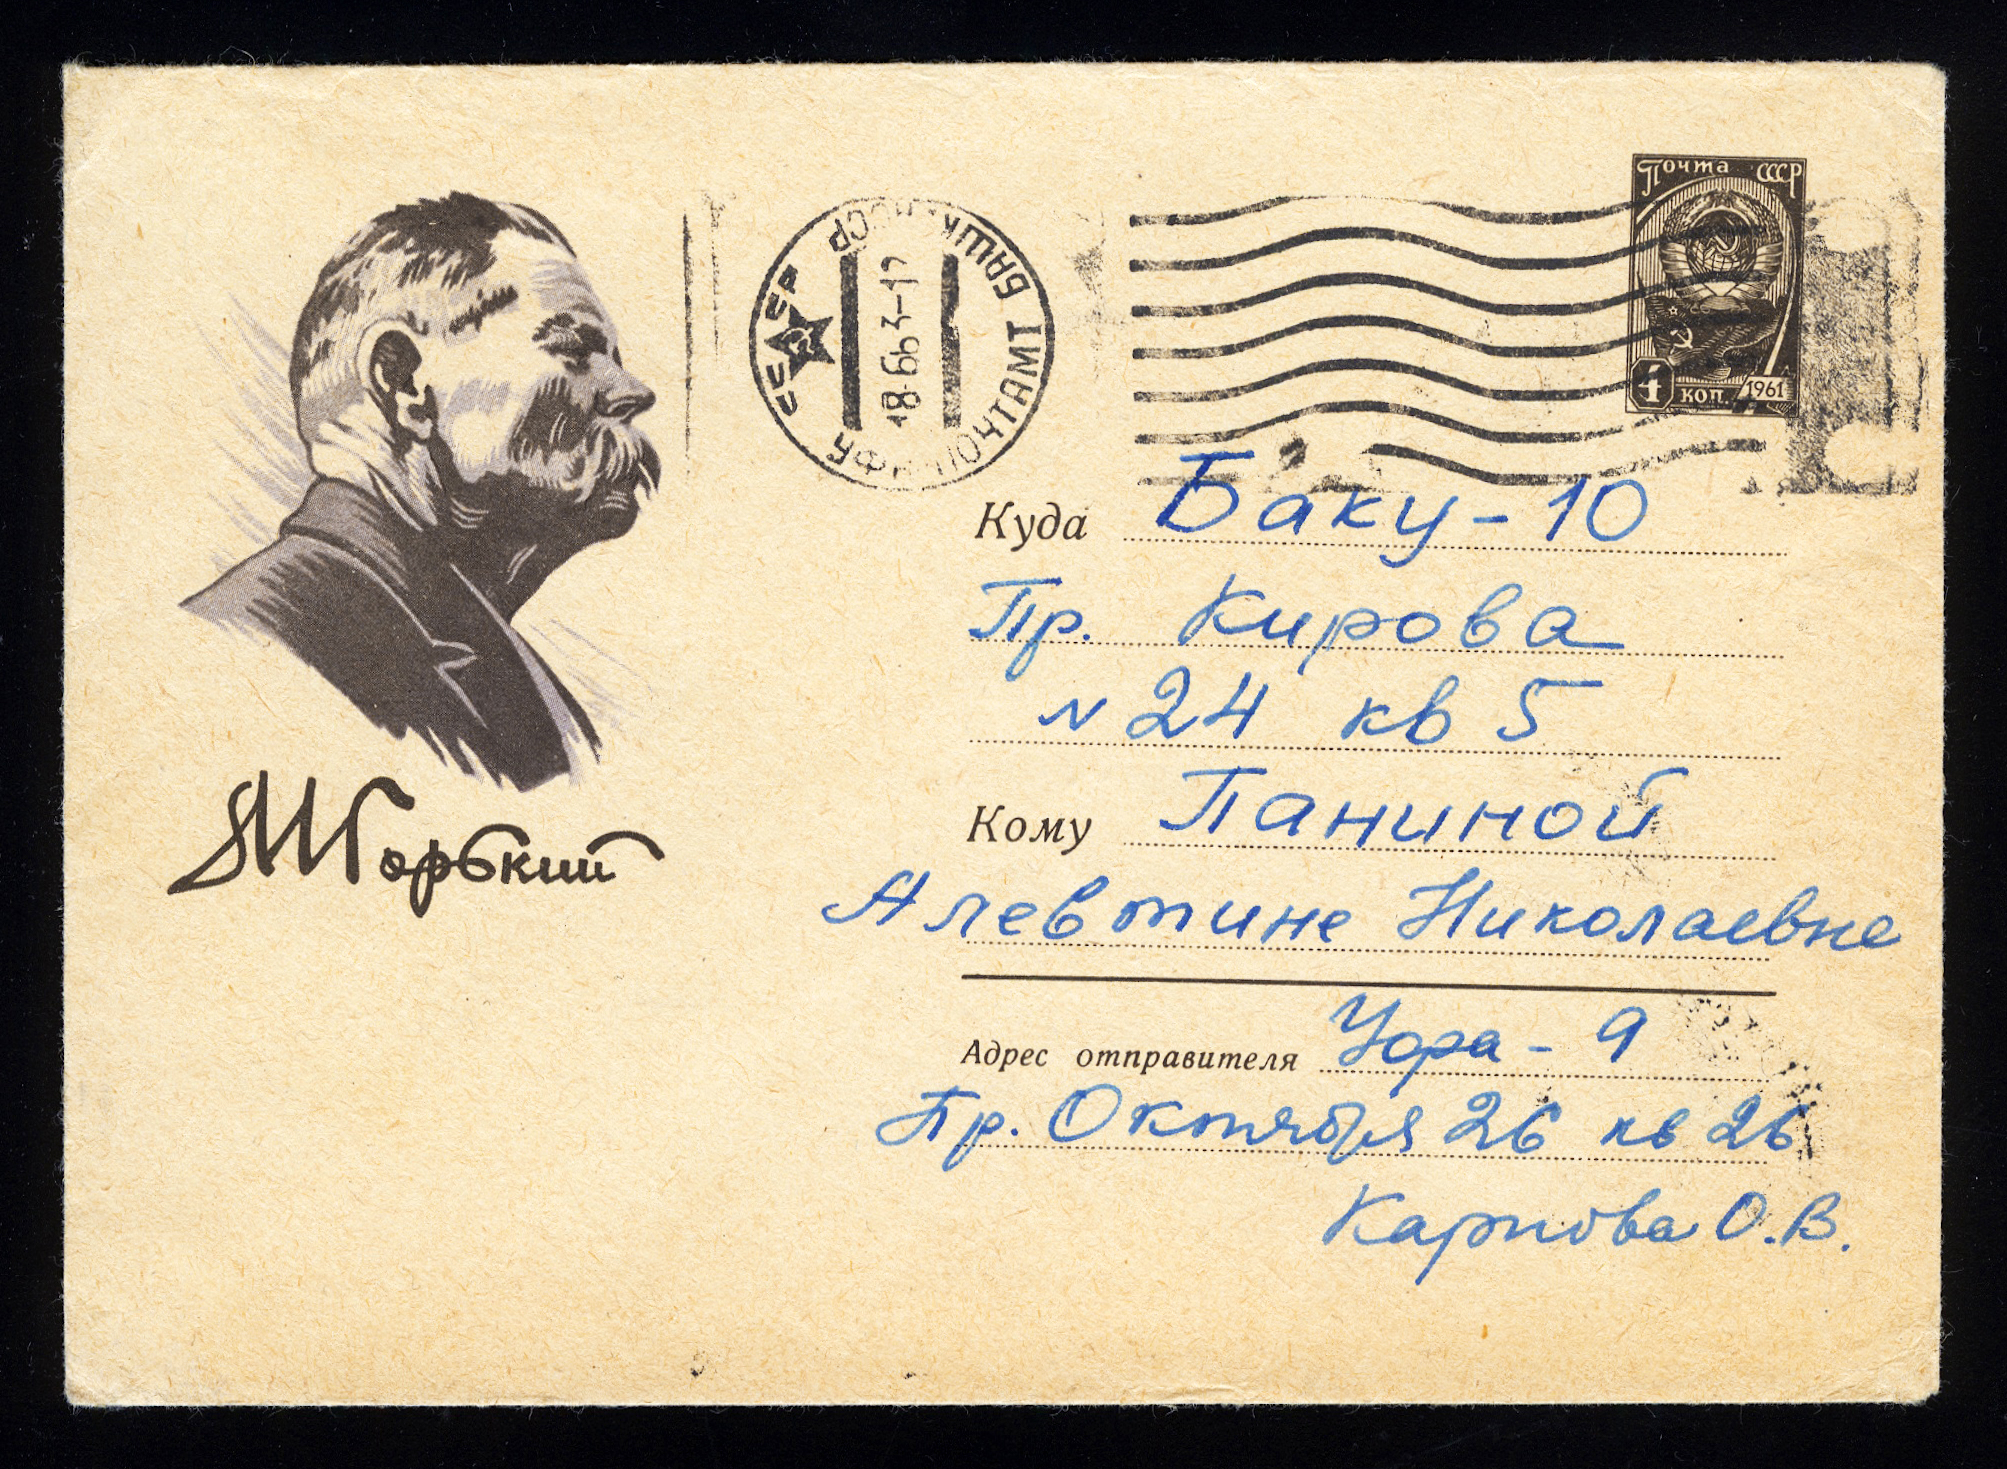 Почта СССР
4 коп. 1961
СССР
УФА ПОЧТАМТ БАШК. АССР
18-6
М Горький
Куда Баку-10
Пр. Кирова
N 24 кв 5
Кому Паниной
Алевтине Николаевне
Адрес отправителя Уфа-9
Пр. Октября 26 кв 26
Карпова О.В.